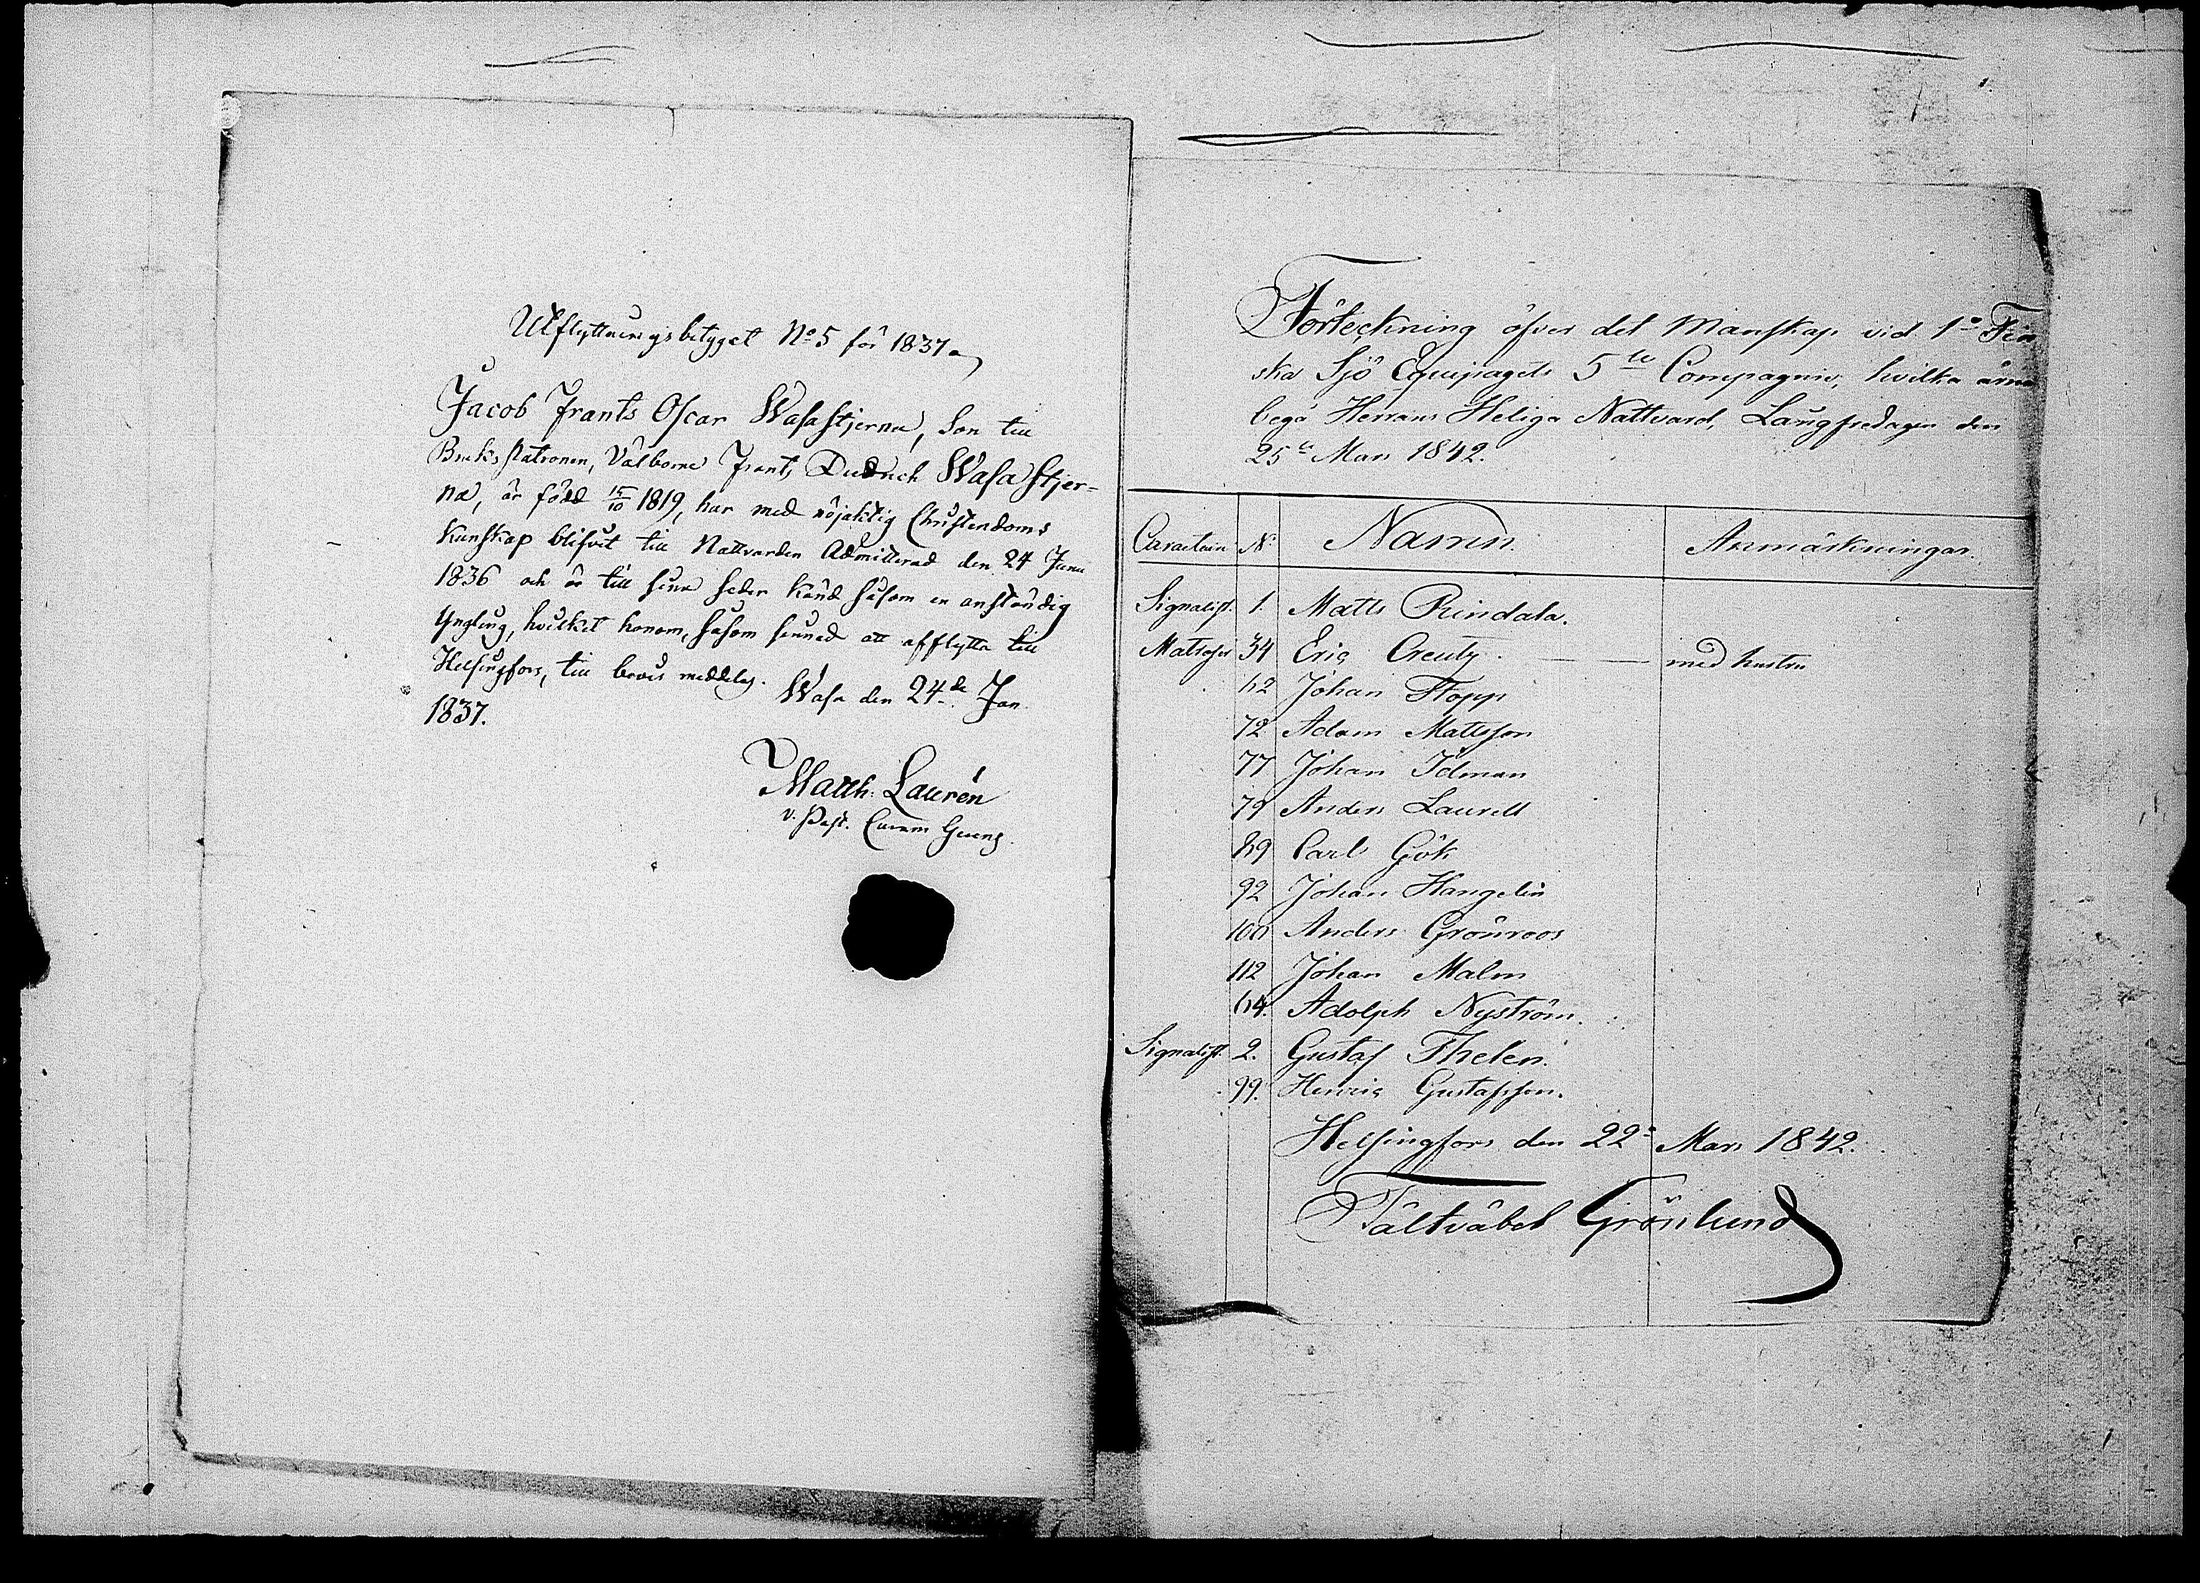 Utflyttningsbetyget No 5 för 1837
Jacob Frants Oscar Wasastjerna, Son till
Bruks Patronen, Välborne Frants Diedrich Wasastjer=
na, är född 15/10 1819, har med nöjaktig Christendoms
Kunskap blifvit till Nattvarden Admitterad den 24 Junii
1836 och är till sina seder känd såsom en anständig
Yngling, hvilket honom, såsom sinnad att afflytta till
Helsingfors, till bevis meddelas. Wasa den 24de Jan
1837.
Matth: Laurén
v. Past. Curam Gerens.
1
Förteckning öfver det Manskap vid 1a Fin
ska Sjö Equipagets 5te Compagnie, hvilka ärna
begå Herrans Heliga Nattvard, Långfredagen den
25te Mars 1842.
Caracteur No Namn Anmärkningar.
Signalist. 1. Matts Rindala.
Matroser 34 Eric Creutz. — — med hustru
62 Johan Hopp
72 Adam Mattsson
77 Johan Idman
79 Anders Laurell
89 Carl Gök
92 Johan Hangelin
100 Anders Grönroos
112 Johan Malm
64. Adolph Nyström.
Signalist. 2. Gustaf Thelen.
99. Henric Gustafsson.
Helsingfors den 22a Mars 1842.
Fältväbel Grönlund